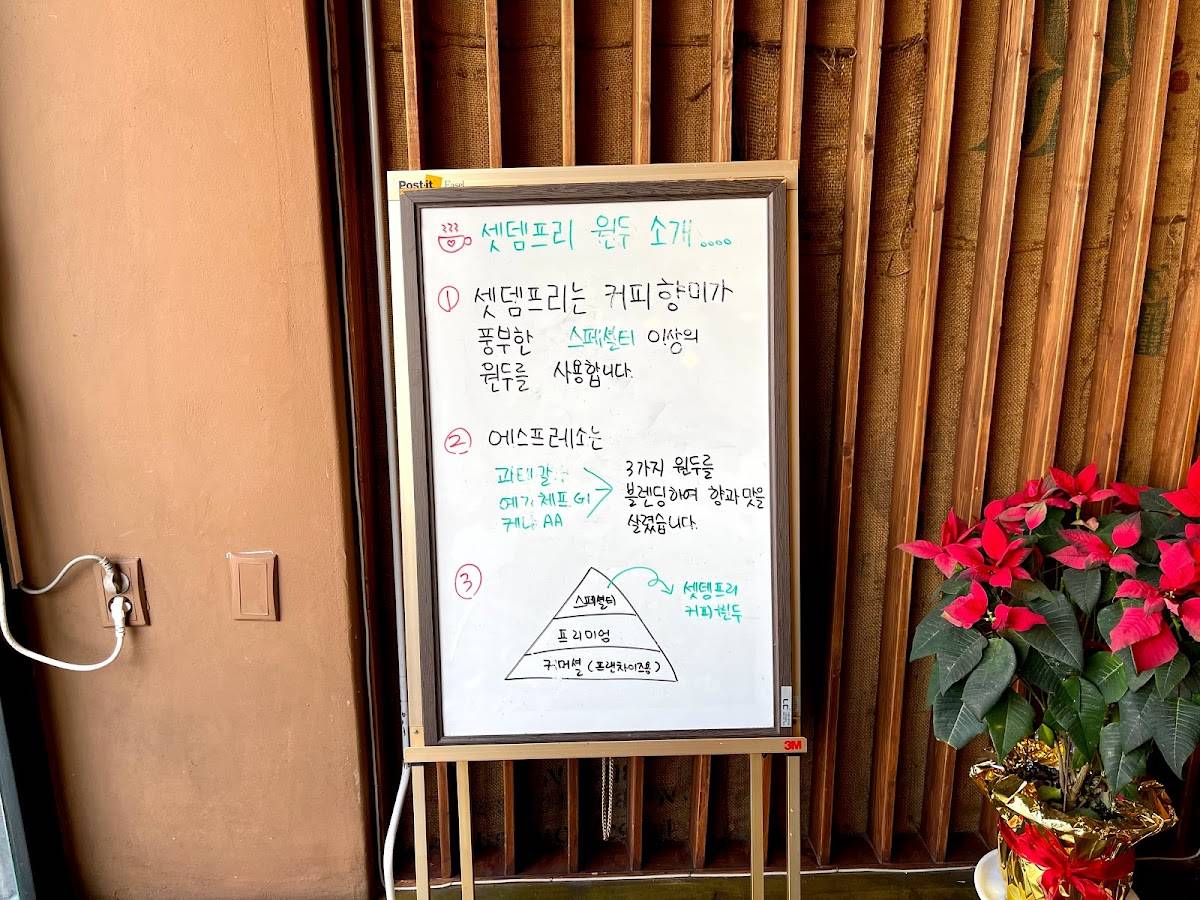 Post-it Easel
셋뎀프리 원두 소개....
① 셋뎀프리는 커피향미가
풍부한 스페셜티 이상의
원두를 사용합니다.
② 에스프레소는
예가체프 G1
케냐 AA
3가지 원두를
블렌딩하여 향과맛을
살렸습니다.
③
스페셜티
프리미엄
커머셜 (프랜차이즈용)
셋뎀프리
커피원두
3M